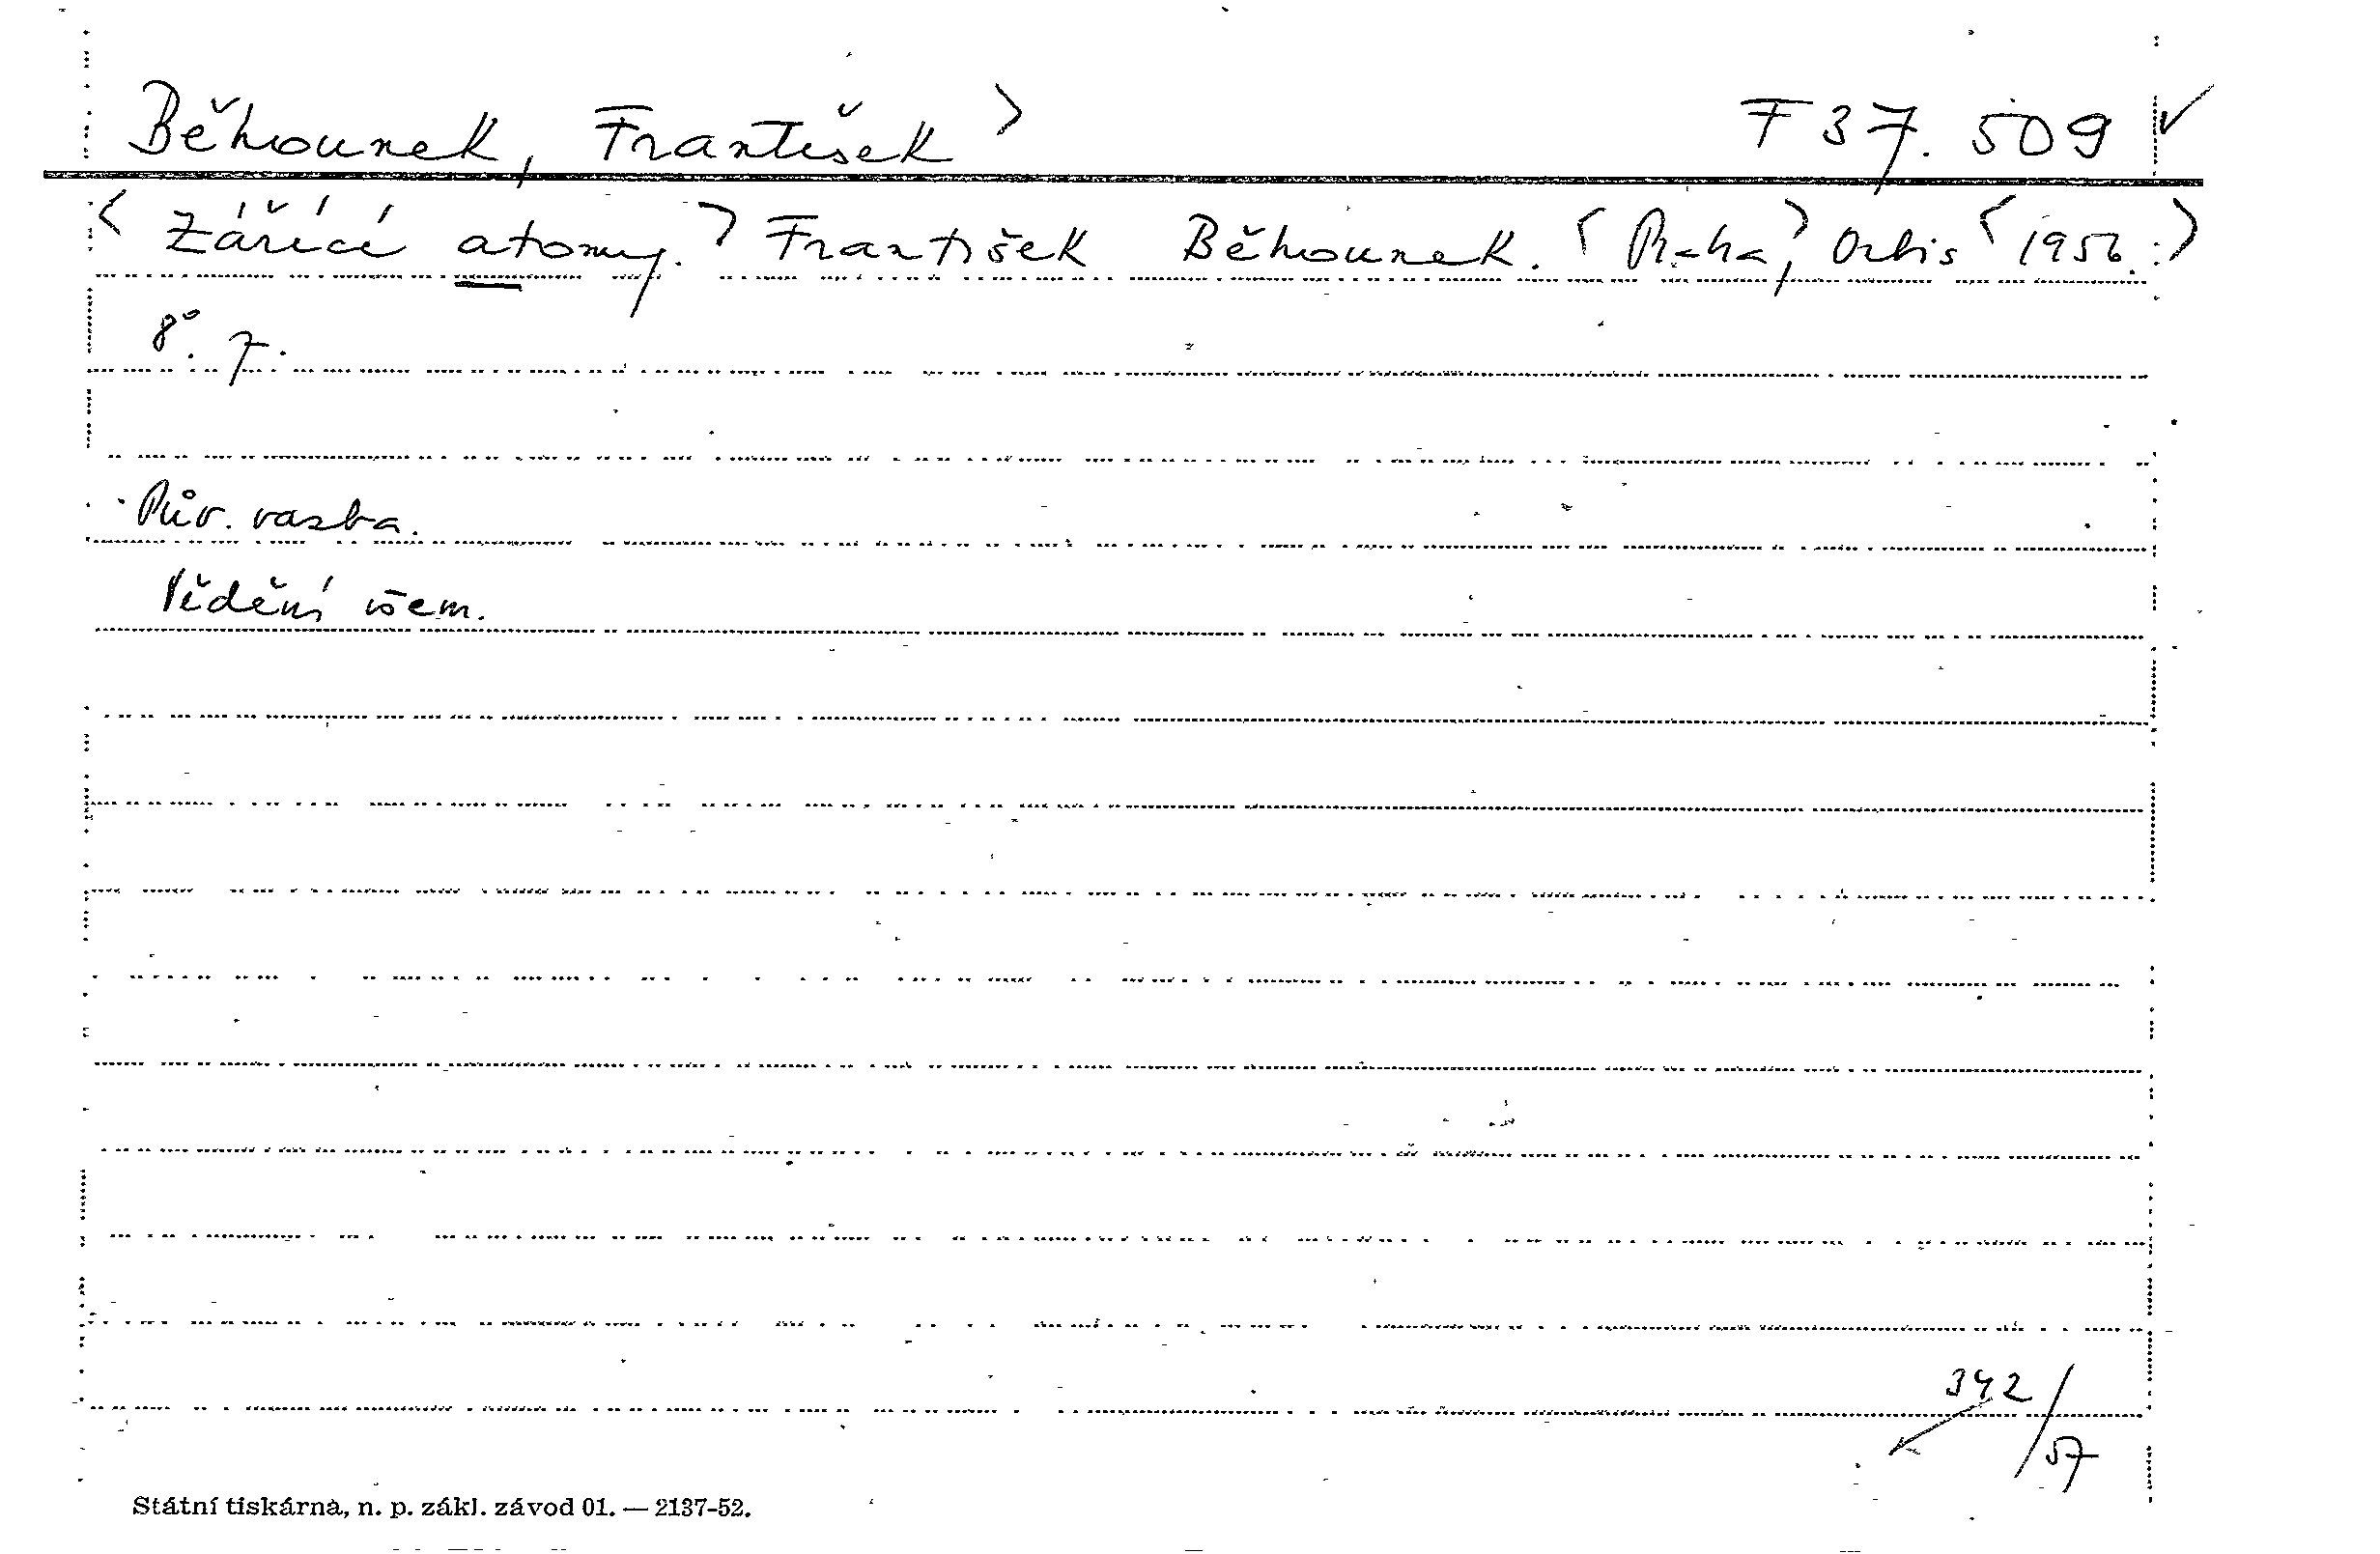 Běhounek, František > F 37.509 ✓
< Zářící atomy. > František Běhounek. < Praha, > Orbis < 1956. >
8°. 7.
Pův. vazba.
Vědění všem.
342/57
Státní tiskárna, n. p. zákl. závod 01. — 2137-52.